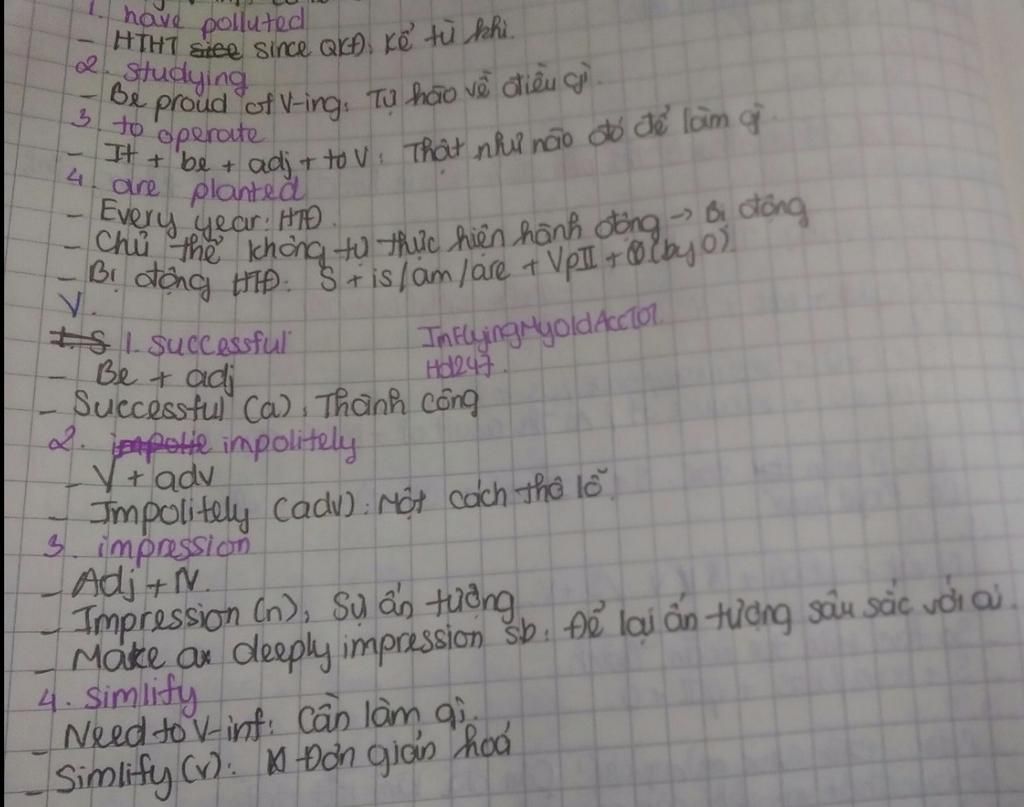 1. have polluted
- HTHT since QKĐ: Kể từ khi.
2. studying
- Be proud of V-ing: Tự hào về điều gì.
3. to operate
- It + be + adj + to V: Thật như nào đó để làm gì.
4. are planted
- Every year: HTĐ.
- Chủ thể không tự thực hiện hành động → Bị động
- Bị động HTĐ: S + is/am/are + VpII + (by O).
V.
1. successful
ImFlyingMyOldAcc101
Hd247.
- Be + adj
- Successful (a): Thành công
2. impolitely
- V + adv
- Impolitely (adv): Một cách thô lỗ
3. impression
- Adj + N.
- Impression (n): Sự ấn tượng
- Make a deeply impression sb: Để lại ấn tượng sâu sắc với ai.
4. simlify
- Need to V-inf: Cần làm gì.
- Simlify (v): Đơn giản hoá